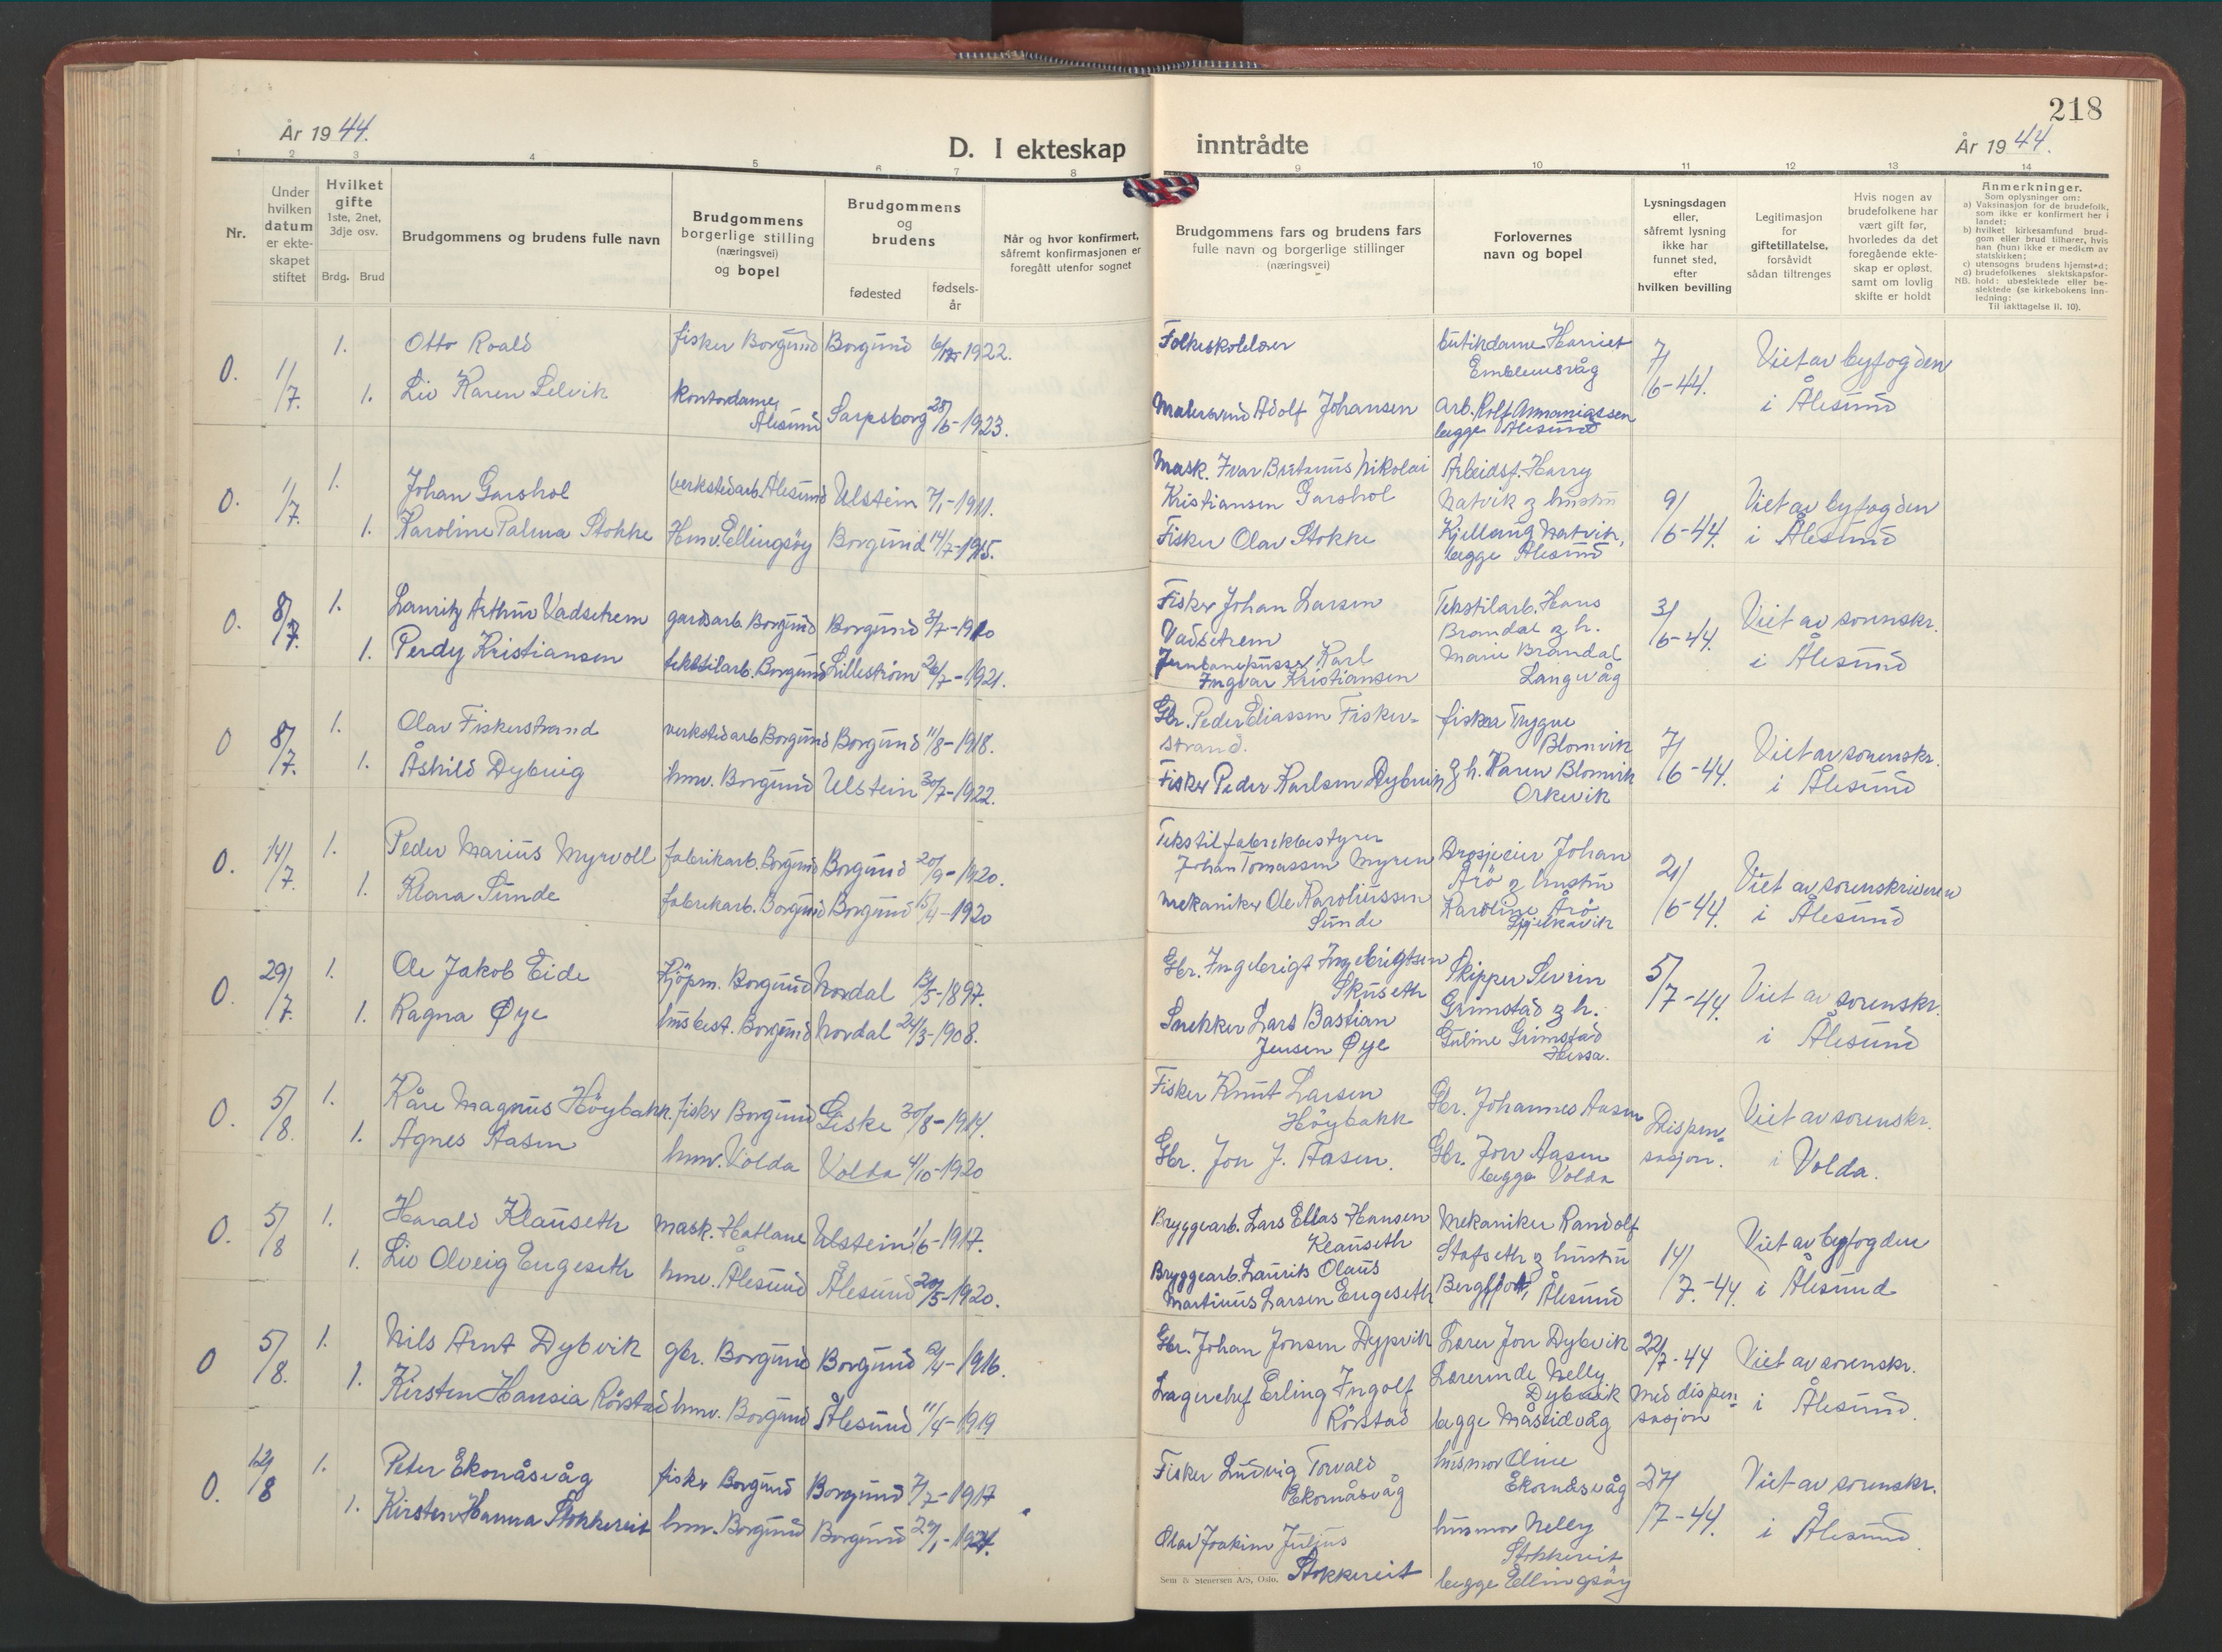 218
År 1944.
D. I ekteskap inntrådte
År 1944.
1 2 3 4 5 6 7 8 9 10 11 12 13 14
Nr.
Under hvilken datum er ekteskapet stiftet
Hvilket gifte 1ste, 2net, 3dje osv.
Brdg. Brud
Brudgommens og brudens fulle navn
Brudgommens borgerlige stilling (næringsvei) og bopel
Brudgommens og brudens
fødested
fødselsår
Når og hvor konfirmert, såfremt konfirmasjonen er foregått utenfor sognet
Brudgommens fars og brudens fars fulle navn og borgerlige stillinger (næringsvei)
Forlovernes navn og bopel
Lysningsdagen eller, såfremt lysning ikke har funnet sted, efter hvilken bevilling
Legitimasjon for giftetillatelse, forsåvidt sådan tiltrenges
Hvis nogen av brudefolkene har vært gift før, hvorledes da det foregående ekteskap er opløst, samt om lovlig skifte er holdt
Anmerkninger.
Som oplysninger om:
a) Vaksinasjon for de brudefolk, som ikke er konfirmert her i landet;
b) hvilket kirkesamfund brudgom eller brud tilhører, hvis han (hun) ikke er medlem av statskirken;
c) utensogns brudens hjemsted;
d) brudefolkenes slektskapsforhold: ubeslektede eller beslektede (se kirkebokens innledning:
NB.
Til iakttagelse II. 10).
O. 1/7. 1. Otto Roald fisker Borgund Borgund 1922. Folkeskolelærer butikdame Harriet Emblemsvåg 7/6-44. Viet av byfogden
1. Liv Karen Selvik kontordame, Ålesund Sarpsborg 28/6-1923. Adolf Johansen arb. Rolf Annaniassen begge Ålesund i Ålesund
O. 1/7. 1. Johan Garshol verkstedarb. Ålesund Ulstein 7/1-1911. Mask. Ivar Bretanus Nikolai Kristiansen Garshol Arbeidsf. Harry Natvik & hustru 9/6-44. Viet av byfogden
1. Karoline Palma Stokke Hmv. Ellingsöy Borgund 14/7-1915. Fisker Olav Stokke Kjellaug Natvik, begge Ålesund i Ålesund
O. 8/7. 1. Lauritz Arthur Vadsetrem gardsarb. Borgund Borgund 31/7-1920 Fisker Johan Larsen Vadsetrem Tekstilarb. Hans Brandal & h. 3/6-44. Viet av sorenskr.
1. Perdy Kristiansen tekstilarb. Borgund Lilleström 26/7-1921. Jernbanepusser Karl Ingvar Kristiansen Marie Brandal Langevåg i Ålesund
O 8/7. 1. Olav Fiskerstrand verkstedarb. Borgund Borgund 11/8-1918. Gbr. Peder Eliassen Fiskerstrand. fisker Trygve Blomvik 7/6-44. Viet av sorenskr.
1. Åshild Dybvig hmv. Borgund Ulstein 30/7-1922. Fisker Peder Karlsen Dybvik & h. Karen Blomvik Orkevik i Ålesund
O. 14/7. 1. Peder Marius Myrvoll fabrikarb. Borgund Borgund 20/9-1920. Tekstilfabrikbestyrer Johan Tomassen Myren Drosjeeier Johan Årö & hustru 21/6-44. Viet av sorenskriveren
1. Klara Sunde fabrikarb. Borgund Borgund 15/4-1920 Mekaniker Ole Karoliussen Sunde Karoline Årö Spjelkavik i Ålesund
O. 29/7. 1. Ole Jakob Eide Kjöpm. Borgund Nordal 13/5-1897. Gbr. Ingebrigt Ingebrigtsen Skuseth Skipper Severin Grimstad & h. 5/7-44. Viet av sorenskr.
1. Ragna Øye husbest. Borgund Nordal 24/3-1908. Snekker Lars Bastian Jensen Øye Guline Grimstad Hessa. i Ålesund
O. 5/8. 1. Kåre Magnus Höybakk. fisker Borgund Giske 30/8-1914. Fisker Knut Larsen Höybakk Gbr. Johannes Aasen Dispensasjon. Viet av sorenskr.
1. Agnes Aasen hmv. Volda Volda 4/10-1920 Gbr. Jon J. Aasen. Gbr. Jon Aasen begge Volda i Volda.
O. 5/8 1. Harald Klauseth Mask. Hatlane Ulstein 1/6-1917. Bryggearb. Lars Elias Hansen Klauseth Mekaniker Randolf Stafseth & hustru 14/7-44. Viet av byfogden
1. Liv Olveig Engeseth hmv. Ålesund Ålesund 20/5-1920. Bryggearb. Laurits Olaus Martinus Larsen Engeseth Bergljot, Ålesund i Ålesund
O 5/8. 1. Nils Arnt Dybvik gbr. Borgund Borgund 1916. Gbr. Johan Jonsen Dypvik Lærer Jon Dybvik 22/7-44 Viet av sorenskr.
1. Kirsten Hansia Rörstad hmv. Borgund Ålesund 11/4-1919 Lagerchef Erling Ingolf Rörstad Lærerinde Nelly Dybvik begge Måseidvåg med dispensasjon i Ålesund.
O. 12/8 1. Peter Ekornåsvåg fisker Borgund Borgund 7/7-1917 Fisker Ludvig Torvald Ekornåsvåg husmor Oline Ekornåsvåg 27/7-44. Viet av sorenskr.
1. Kirsten Hanna Stokkereit hmv. Borgund Borgund 29/1-1921. Olav Joakim Julius Stokkereit husmor Nelly Stokkereit begge Ellingsöy i Ålesund.
Sem & Stenersen A/S, Oslo.